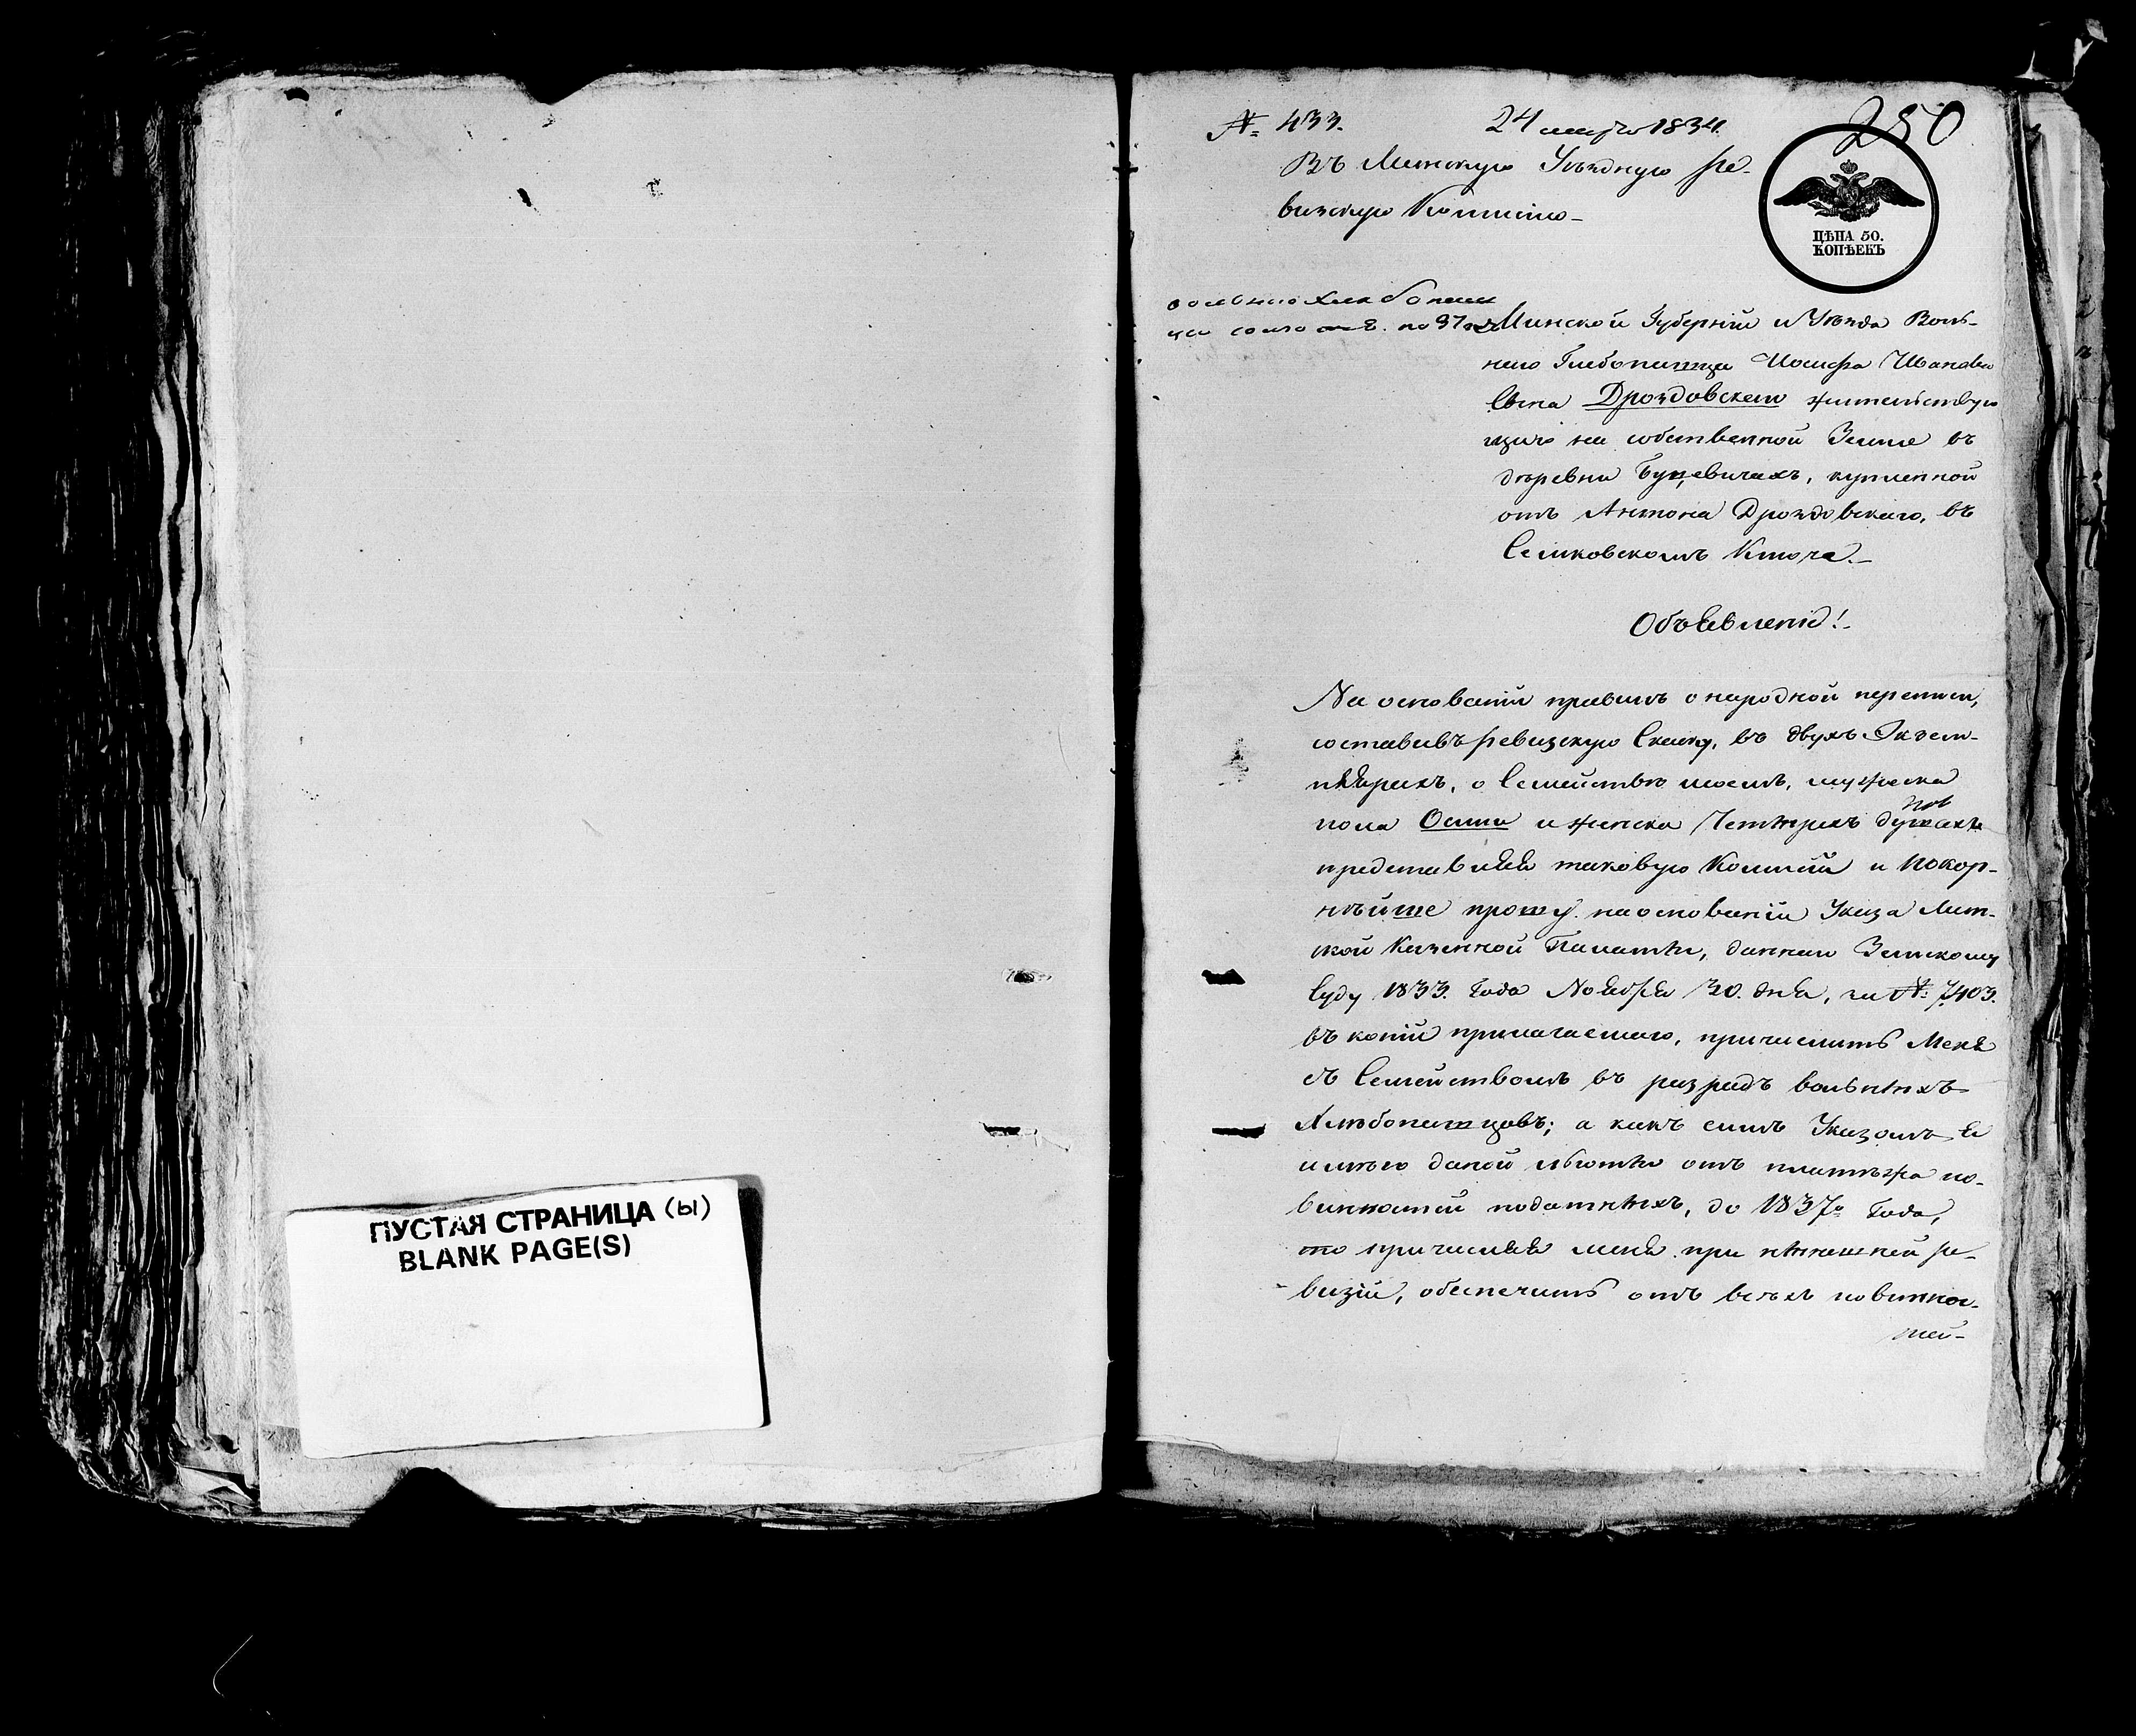 ПУСТАЯ СТРАНИЦА (Ы)
BLANK PAGE(S)
№ 433. 24 марта 1834. 250
Въ Минскую Уѣздную Ре-
визскую Комисію
ЦѢНА 50.
КОПѢЕКЪ
по 37
Минской Губерніи и Уѣзда Воль-
наго Хлебопашца Иосифа Иванова
Сына Дроздовскаго жительствую
щаго на собственной Земле въ
деревни Буцевичахъ, купленной
отъ Антона Дроздовскаго, въ
Семковскомъ Ключе.
Объявленіе!
На основаніи правилъ о народной переписи,
составивъ ревизскую Сказку, въ двухъ Экзем-
плярахъ, о Семействѣ моемъ, мужеска
пола Осми и женска Четырехъ душахъ
представляя таковую Комисіи и покор-
нѣйше прошу на основаніи Указа Мин-
ской Казенной Палаты, даннаго Земскому
Суду 1833. Года Ноября 30. дня, за № 7,403.
въ копіи прилагаемаго, причислить Меня
съ Семействомъ въ разрядъ вольныхъ
Хлѣбопашцовъ; а какъ симъ Указомъ Я
имѣю даной льготы отъ платѣжа по-
винностей податныхъ, до 1837го Года,
то причисляя меня при нынешней ре-
визіи, обеспечить отъ всѣхъ повиннос-
тей-